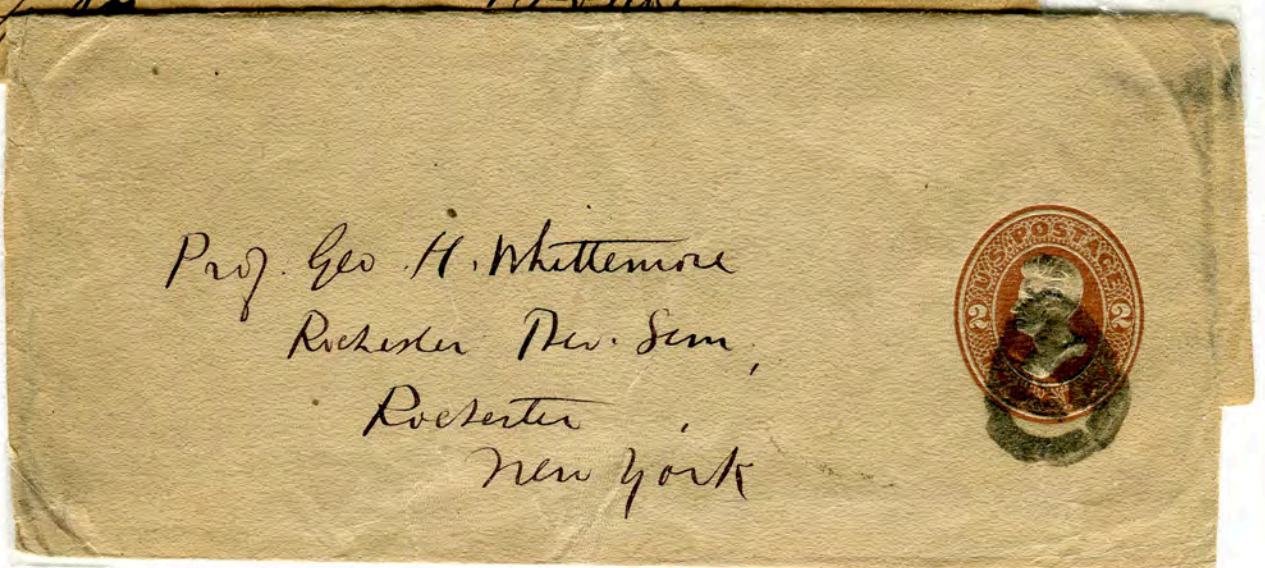 Prof. Geo. H. Whittemore
Rochester Theo. Sem,
Rochester,
New York
U.S. POSTAGE
2 2